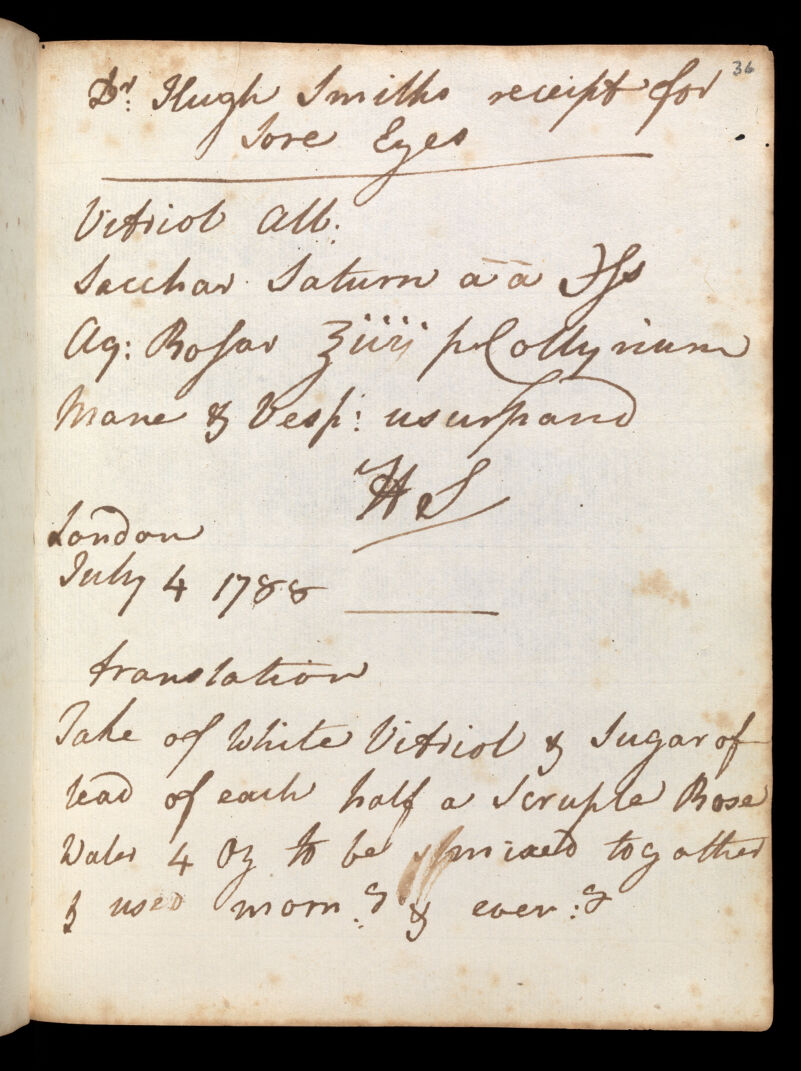 36
Dr: Hugh Smiths receipt for
Sore Eyes
Vitriol Alb.
Sacchar. Saturn āā ℈ſs
Aq: Roſar ℥iiij p Collyrium
Mane & Vesp: usurpand
HS
London
July 4 1788
translation
Take of White Vitriol & Sugar of
lead of each half a Scruple Rose
Water 4 Oz to be mixed togather
& used morn:g & even:g